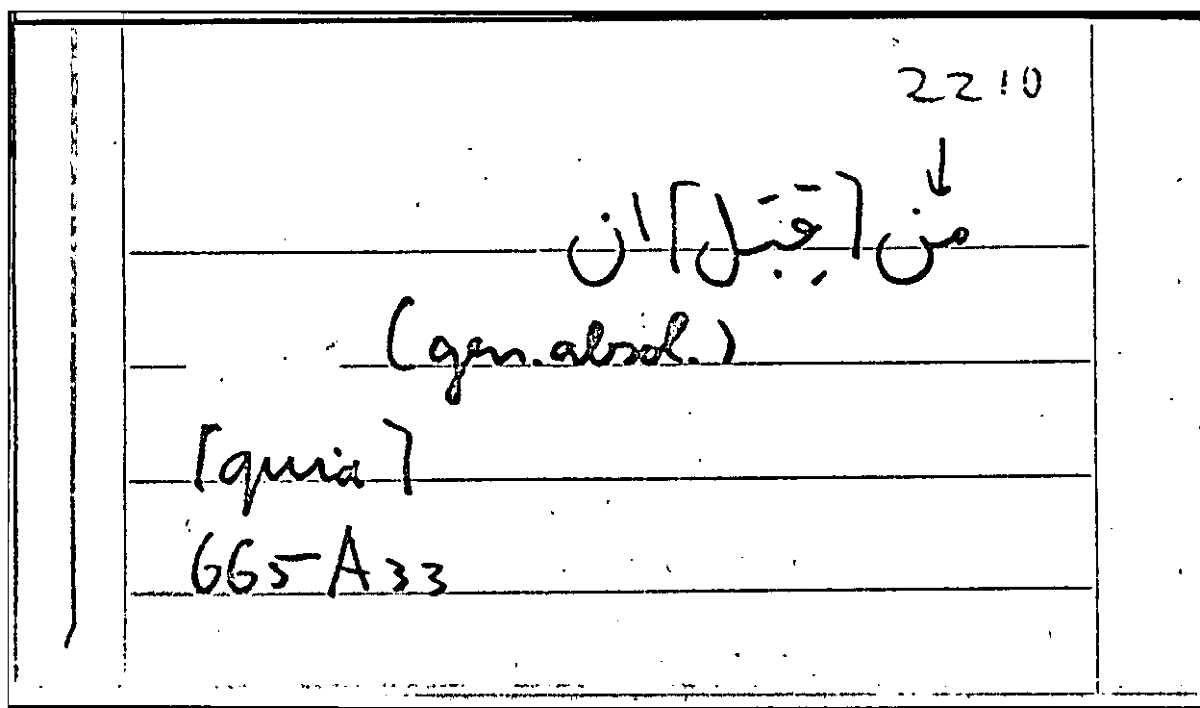 2210
↓
من [قِبَل] ان
(gen. absol.)
[quia]
665 A 33